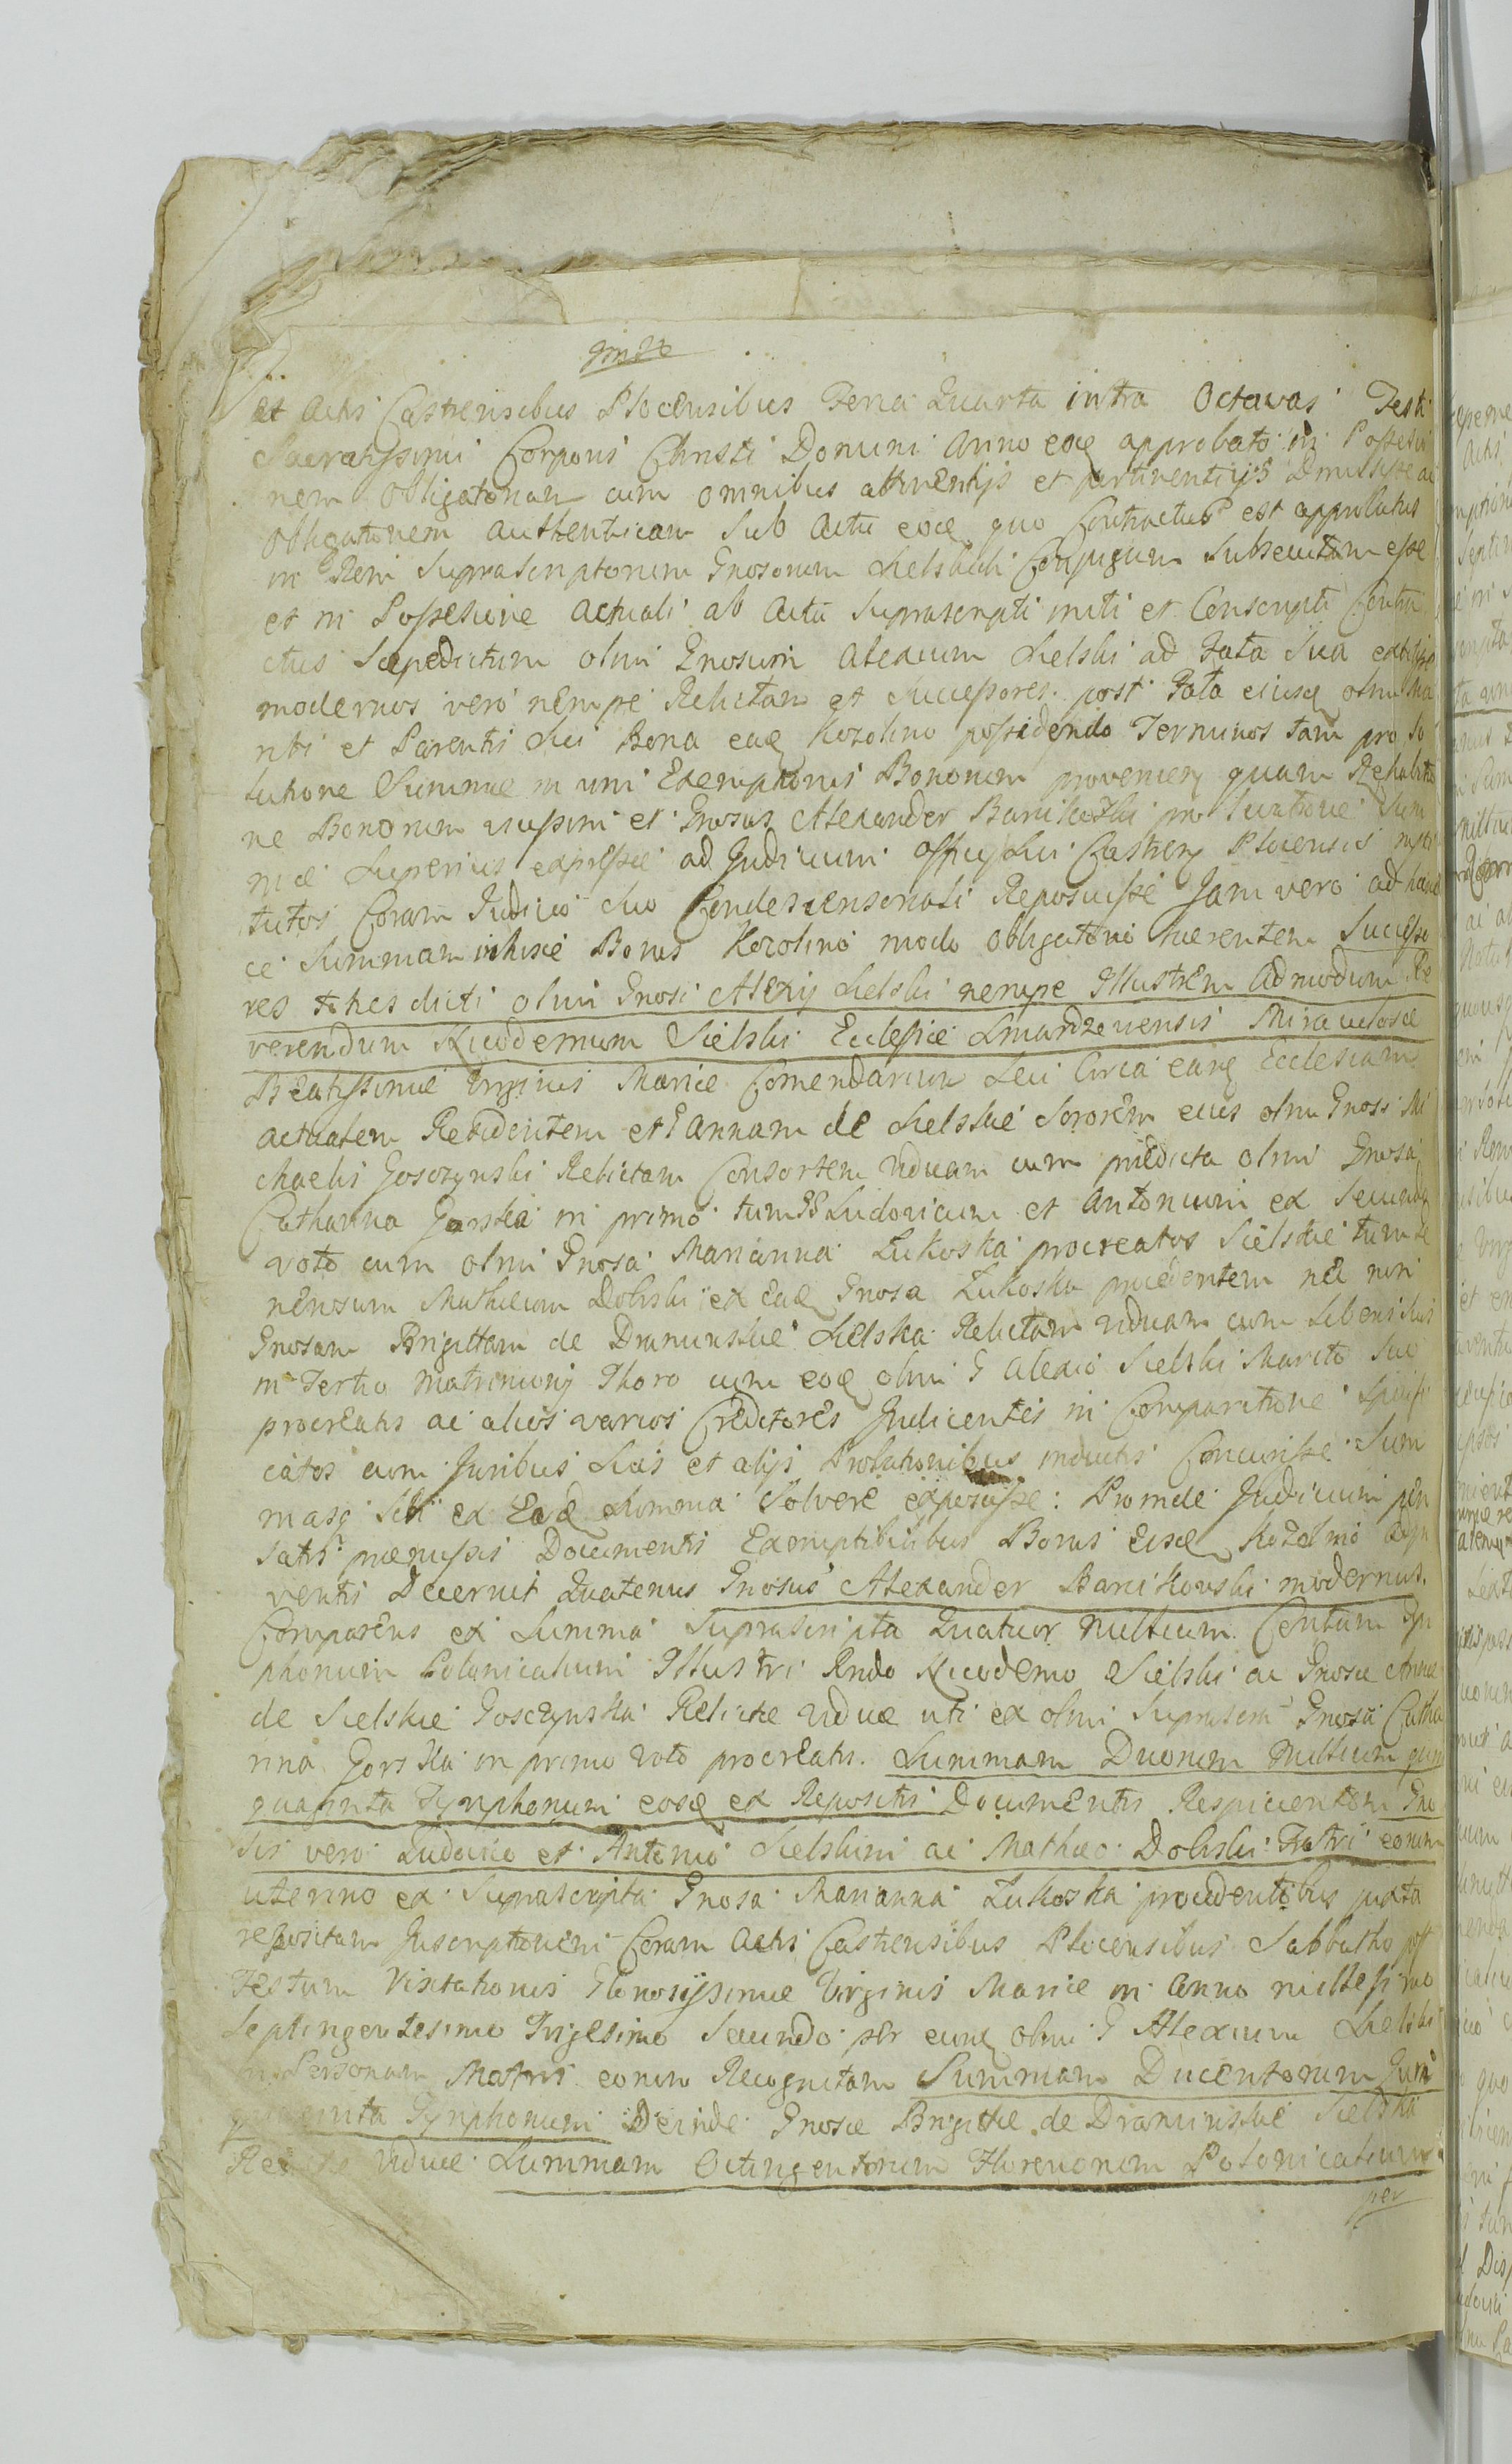 et Actis Castrensibus Plocensibus Feria Quarta intra Octavas Festi
Sacratissimi Corporis Christi Domini Anno eoq approbato in Possessio
nem Obligatoriam cum omnibus attinentijs et pertinentijs Dimisisse ac
obligationem authenticam Sub Actu eoq quo Contractus est approbatus
in Rem Suprascriptorum Gnosorum Sielskich Conjugum Subsecutam esse
et in Possesione actuali ab Actu Suprascripti initi et Conscripti Contra
ctus Saepedictum olim Gnosum Alexium Sielski ad Fata Sua extitisse
modernos vero nempe Relictam et Successores post Fata eiusq olim Ma
riti et Parentis Sui Bona eaq Kozolino possidendo Terminos tam pro So
lutione Summae in vim Exemptionis Bonorum provenien quam Rehabitio
ne Bonorum assumi et Gnosus Alexander Barcikoski pro levatione Sum
mae Superius expressae ad Judicium Officij Sui Castren Plocensis insti
tutos Coram Judicio Suo Condescensoriali Reposuisse Jam vero ad hanc
ce Summam inhisce Bonis Kozolino modo obligatorio haerentem Successo
res dicti olim Gnosi Alexij Sielski nempe Illustrem Admodum Re
verendum Nicodemum Sielski Ecclesiae Smardzevensis Miraculosae
Beatissimae Virginis Mariae Comendarium Seu Circa eanq Ecclesiam
actualem Residentem et G Annam de Sielskie Sororem eius olim Gnosi Mi
chaelis Goszczynski Relictam Consortem Viduam cum praedicta olim Gnosa
Catharina Gorska in primo tum GG Ludovicum et Antonium ex Secundo
voto cum olim Gnosa Marianna Lukoska procreatos Sielskie tum Ge
nerosum Mathaeum Dolski ex eaq Gnosa Lukoska procedentem nec non
Gnosam Brigittam de Draminskie Sielska Relictam Viduam cum Liberis Suis
in Tertio Matrimonij Thoro cum eoq olim G Alexio Sielski Marito Suo
procreatis ac alios varios Creditores Judicentes in Comparitione Specifi
catos cum Juribus Suis et alijs Probationibus inductis Concurisse Sum
masq Sibi ex Eaq Summa Solvere exposuisse: Proinde Judicium pen
satis praemissis Documentis Exemptibilibus Bonis eisq Kozolino
ventis Decernit Quatenus Gnosus Alexander Barcikowski modernus
Comparens ex Summa Suprascripta Quatuor Millium Centum Tyn
phonum Polonicalium Illustri Rndo Nicodemo Sielski ac Gnosae Annae
de Sielskie Goszczynska Relictae Viduae uti ex olim Suprascrta Gnosa Catha
rina Gorska in primo voto procreatis. Summam Duorum Millium quin
quaginta Tynphonum eosq ex Repositis Documentis Respicientem Gno
sis vero Ludovico et Antonio Sielskim ac Mathaeo Dolski Fratri eorum
uterino ex Suprascripta Gnosa Marianna Lukoska procedentibus juxta
repositam Inscriptionem Coram Actis Castrensibus Plocensibus Sabbatho post
Festum Visitationis Gloriosissimae Virginis Mariae in Anno millesimo
Septingentesimo Trigesimo Secundo per eunq olim G Alexium Sielski
in Personam Matris eorum Recognitam Summam Ducentorum Quin
quaginta Tynphonum Deinde Gnosae Brigittae de Draminskie Sielska
Relictae Viduae Summam Octingentorum Florenorum Polonicalium
per